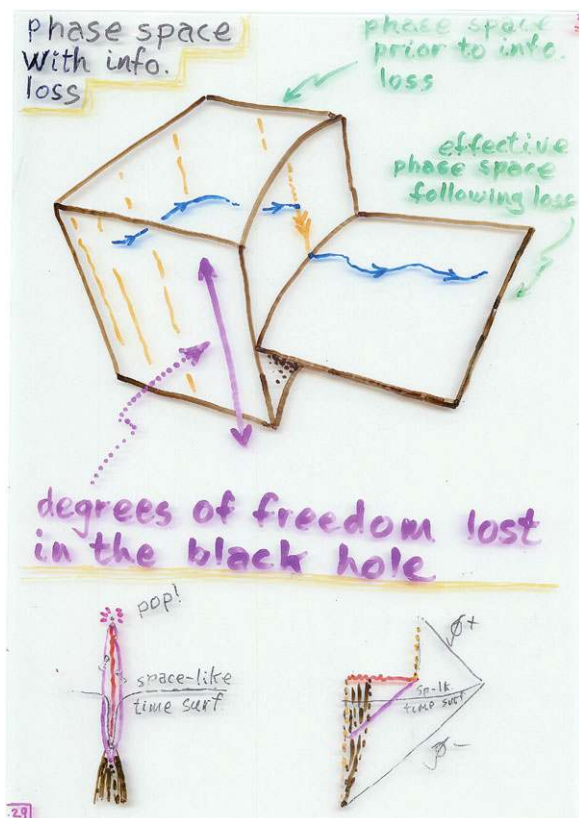 phase space
With info.
loss
phase space
prior to info.
loss
effective
phase space
following loss
degrees of freedom lost
in the black hole
pop!
space-like
time surf
sp-lk.
time surf.
29